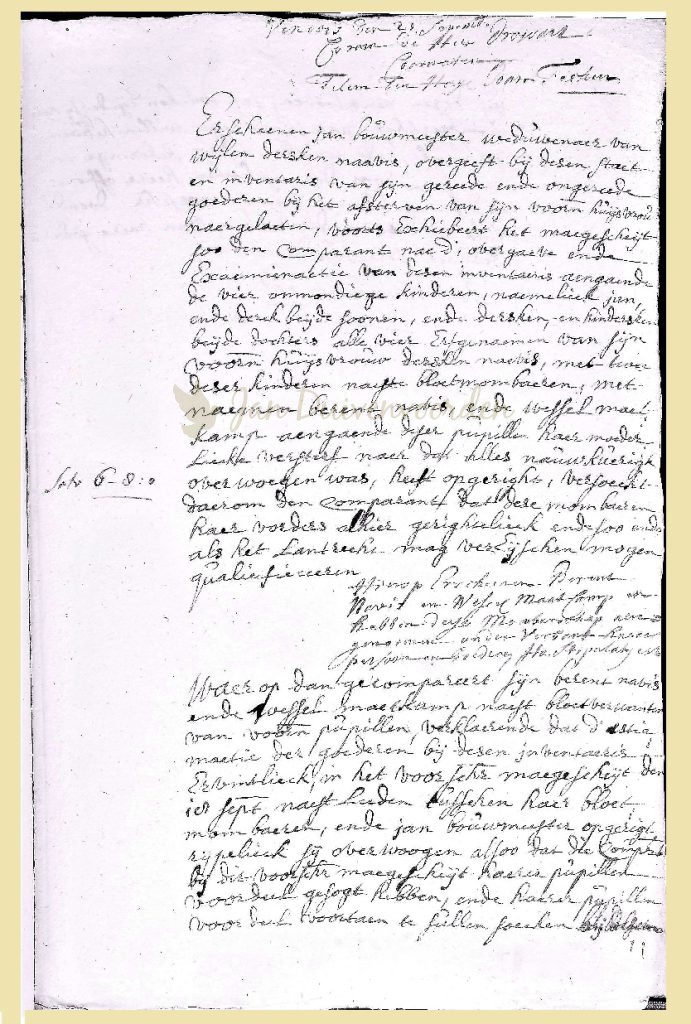 Veneris den 23 Septemb.
Coram de Heer Drossart
Coornoten
Erschenen jan bouwmeester weduwenaer van
wijlen dersken naavis, overgeeft bij desen staet
en inventaris van sijn gereede ende ongereede
goederen bij het afsterven van sijn voorn huijsvrou
naergelaeten, voorts Exhibeert het maegescheijt
soo den Comparant nae d' overgaeve ende
Exaemienaetie van desen inventaris aengaende
de vier onmondiege kinderen, naemelick jan,
ende derck beijde soonen, ende dersken, en hindersken
beijde dochters alle vier Erfgenaemen van sijn
voorn huijsvrouw dersken naevis, met twee
deser kinderen naeste bloetmombaeren, met
naemen berent navis, ende wessel maet
kamp aengaende deser pupillen haer moeder
Licke versterf naer dat alles nauwkuerigh
overwoegen was, heeft opgericht, versoeckt
daerom den Comparant dat dese mombaeren
haer vorders alhier gerightelick ende soo ende
als het Lantrecht mag vereijschen mogen
qualiefieceeren
6-8:0
Hierop Erschenen Berent
Navis en Wessel Maatcamp en
hebben dese Momberschap aen
genomen onder Verbant haerer
persoon en goederen
Waer op dan gecompareert sijn berent navis
ende wessel maetkamp naest bloetverwanten
van voorn pupillen, verklaerende dat d' estia
maetie der goederen bij desen inventaris
Ervintlieck, in het voorschr maegescheijt den
sept naest Leeden tusschen haer bloet
mombaeren, ende jan bouwmeester opgerigt
rijpelieck sij overwoogen alsoo dat die Comprten
bij dit voorschr maegescheijt haerer pupillen
voordeel gesogt hebben, ende haerer pupillen
voordeel voortaen te sullen soecken
Jan Duivenvoorden